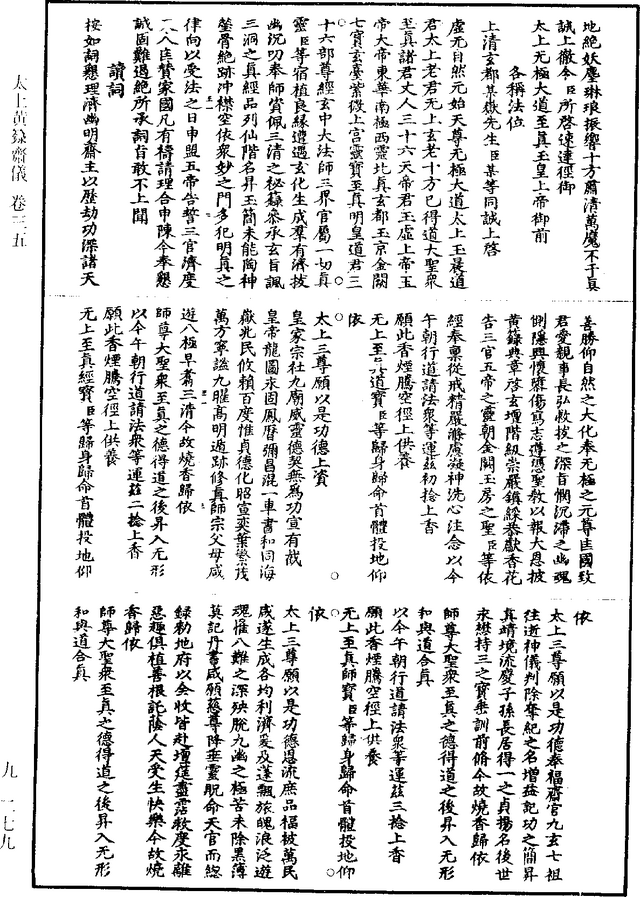 地絕妖塵琳琅振響十方肅清萬魔不干真
誠上徹今臣所啓速達徑御
太上无極大道至真玉皇上帝御前
各稱法位
上清玄都某嶽先生臣某等同誠上啓
虛无自然元始天尊无極大道太上玉晨道
君太上老君无上玄老十方已得道大聖衆
至真諸君丈人三十六天帝君玉虛上帝玉
帝大帝東華南極西靈北真玄都玉京金闕
七寶玄臺紫微上宮靈寶至真明皇道君三
十六部尊經玄中大法師三界官屬一切真
靈臣等宿植良緣遭遇玄化生成羣有濟拔
幽沉叨奉師資佩三清之秘籙參承玄旨諷
三洞之真經品列仙階名昇玉簡未能陶神
瑩骨絕跡冲襟空依衆妙之門多犯明真之
律向以受法之日申盟五帝告誓三官濟度
人臣賛家國凡有禱請理合申陳今奉懇
誠固難遏絕所承詞旨敢不上聞
讀詞
按如詞懇理濟幽明齋主以歷劫功深諸天
善勝仰自然之大化奉元極之元尊匡國致
君愛親事長弘救拔之深旨憫沉滯之幽魂
惻隱興懷齎傷寫志遵憑聖教以報大恩披
黃籙典章啓玄壇階級崇嚴鎮綵恭獻香花
告三官五帝之靈朝金闕玉房之聖臣等依
經奉稟從戒精嚴滌慮凝神洗心注念以今
午朝行道請法衆等運茲初捻上香
願此香煙騰空徑上供養
无上至真道寶臣等歸身歸命首體投地仰
依
太上三尊願以是功德上資
皇家宗社九廟威靈德契無爲功宣有截
皇帝龍圖永固鳳曆彌昌混一車書和同海
嶽兆民攸賴百度惟貞德化昭宣奕葉繁茂
萬方寧謐九曜高明遁跡修真師宗父母咸
遊八極早膺三清今故燒香歸依
師尊大聖衆至真之德得道之後昇入无形
以今午朝行道請法衆等運茲二捻上香
願此香煙騰空徑上供養
无上至真經寶臣等歸身歸命首體投地仰
依
太上三尊願以是功德奉福齋官九玄七祖
往逝神儀判除奪紀之名增益記功之簡昇
真靖境流慶子孫長居得一之貞揚名後世
永懋持三之寶垂訓前脩今故燒香歸依
師尊大聖衆至真之德得道之後昇入无形
和與道合真
以今午朝行道請法衆等運茲三捻上香
願此香煙騰空徑上供養
无上至真師寶臣等歸身歸命首體投地仰
依
太上三尊願以是功德恩流庶品福被萬民
咸遂生成各均利濟爰及蓬飄旅魄浪泛遊
魂惟八難之深殃脫九幽之極苦未除黑簿
莫記丹書咸願慈尊降垂靈貺命天官而總
錄勑地府以全收皆赴壇筵盡霑救度永離
惡趣俱植善根託蔭人天受生快樂今故燒
香歸依
師尊大聖衆至真之德得道之後昇入无形
和與道合真
太上黃籙齋儀 卷三五
九 一七九